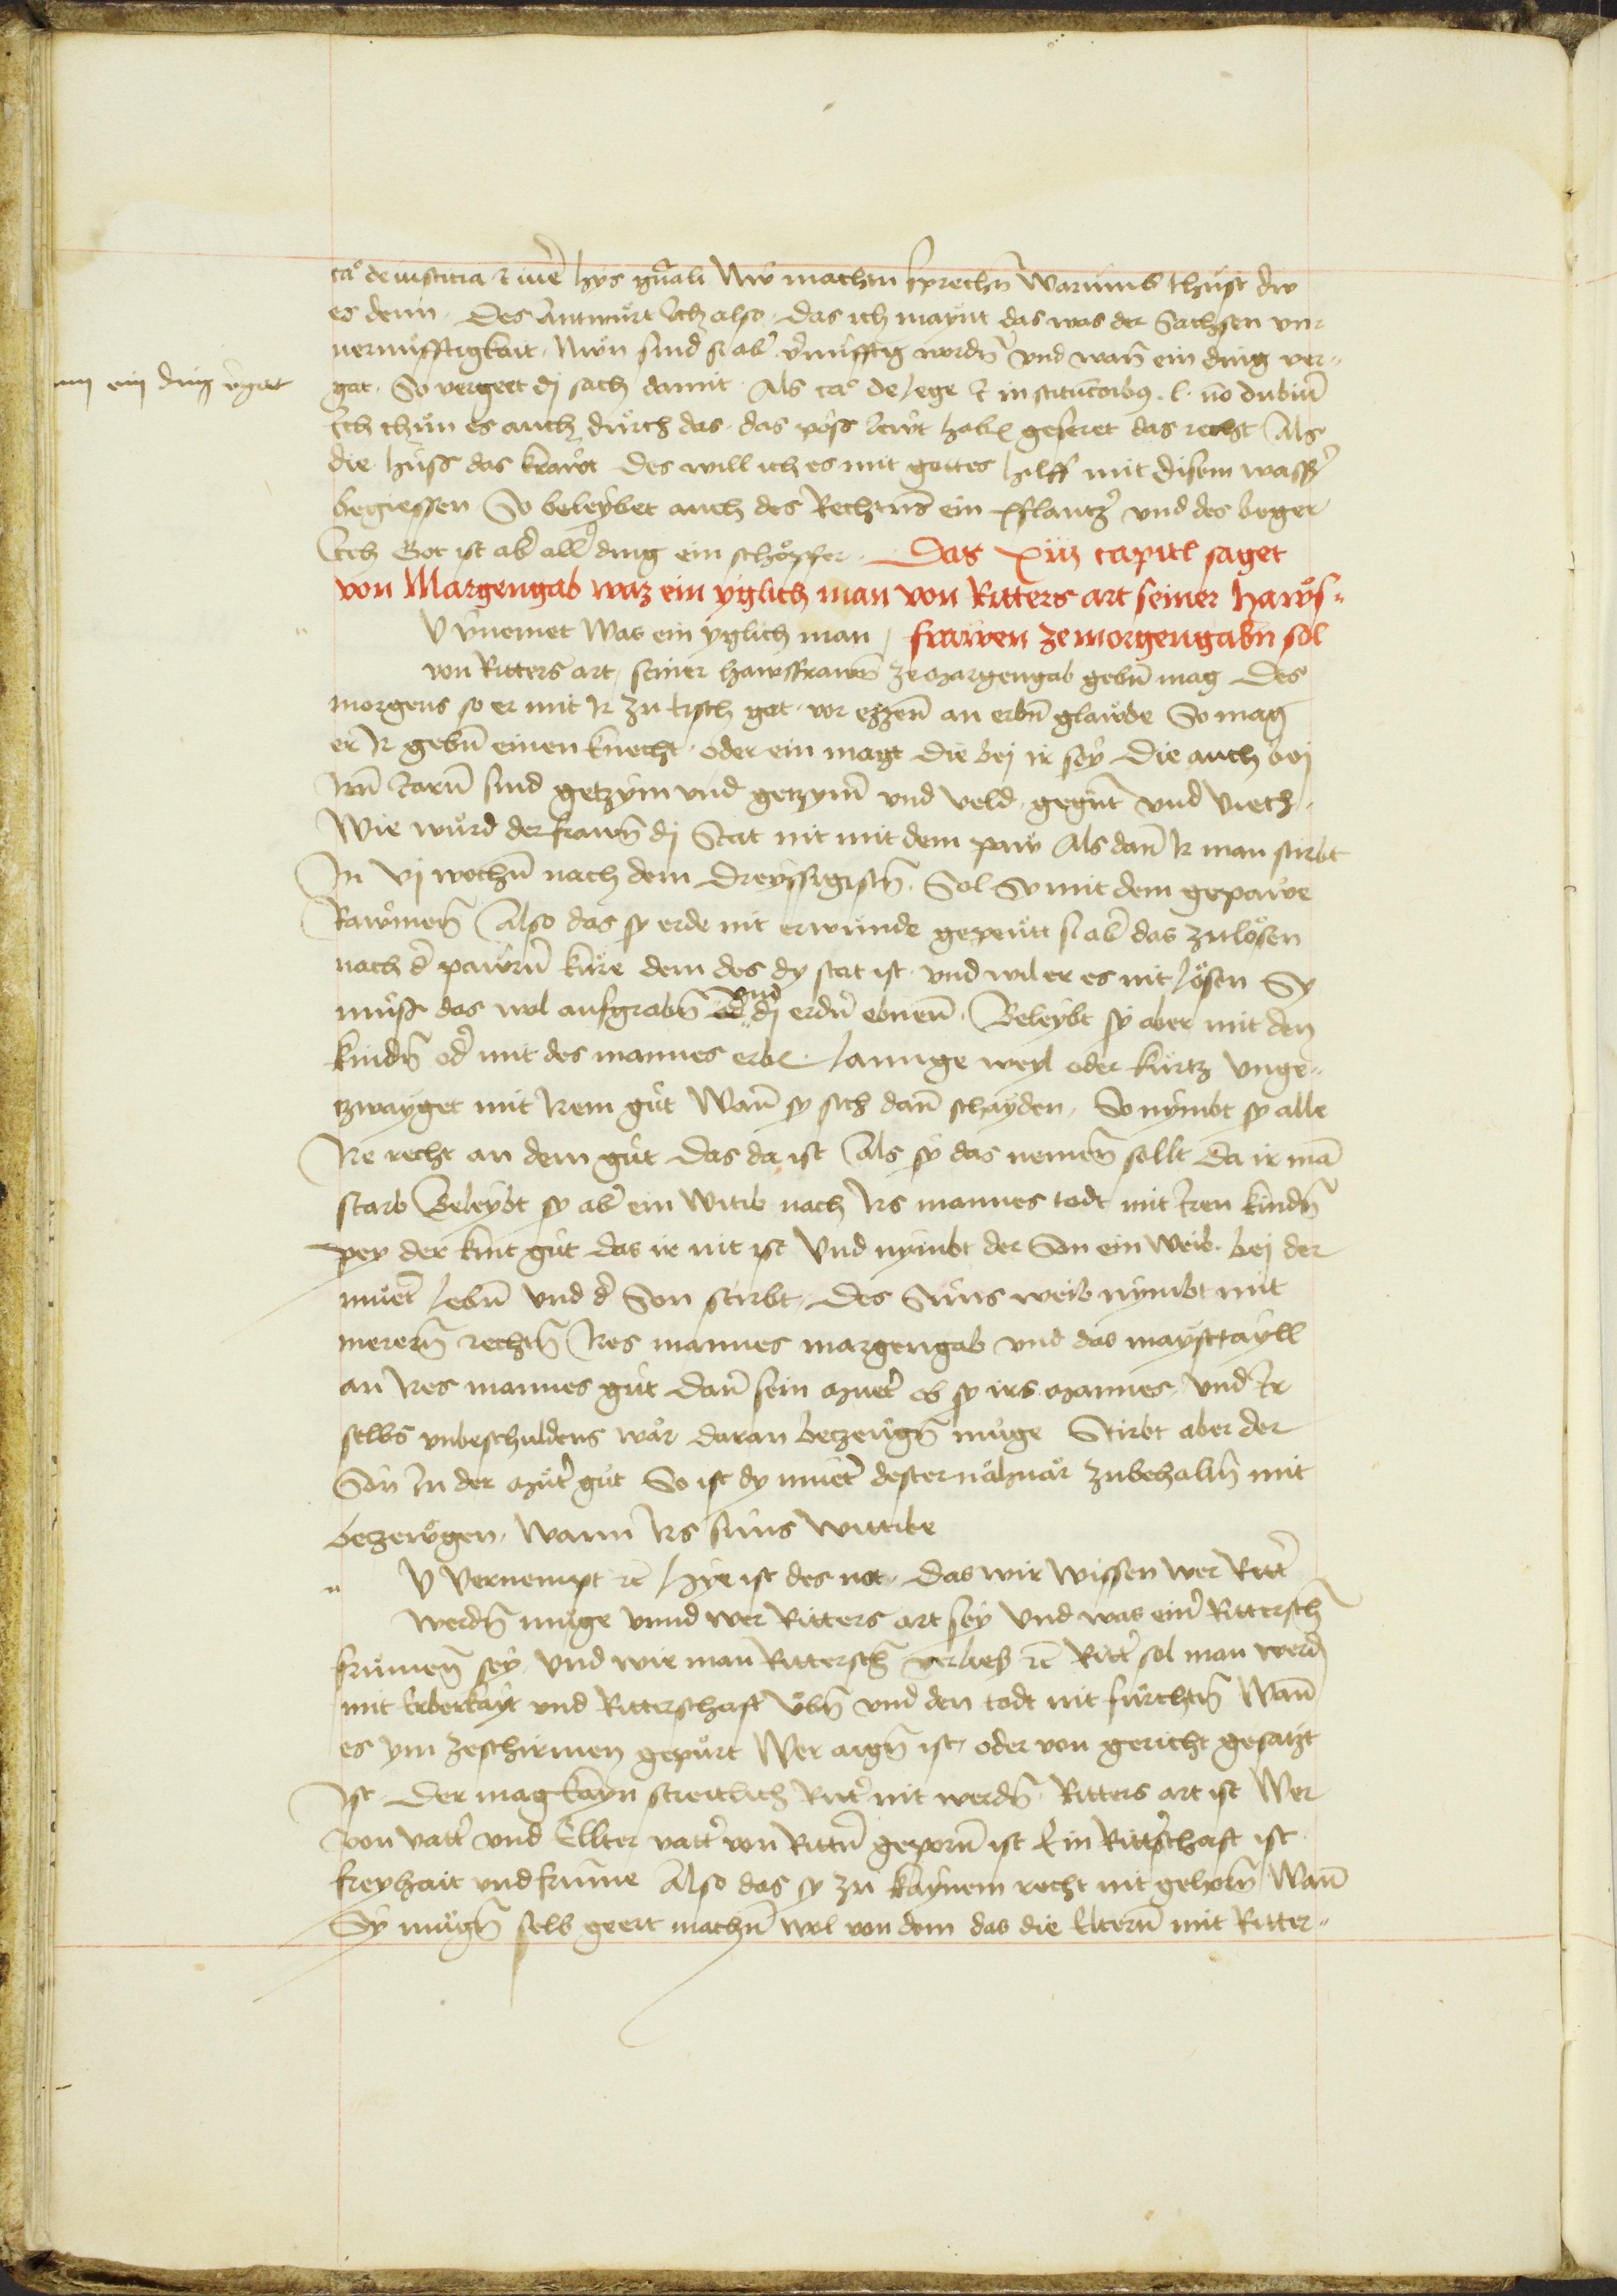 cao de iusticia et iure hys gnali Nw machtu sprechn Warumb thuest dw
es denn. Des Antwurt Ich also. das ich maynt das was der Sachsen vn-
uernufftigkait. Nwn sind si ab' v'nufftig wordn und wan ein ding ver-
nn ein ding v'gat
gat. So vergeet dj sach damit. Als cao de lege et in stitucoibus. l. no dubiu
Ich thun es auch durch das. das poss lewt haben geseret das recht Als
die huss das krawt Des will ich es mit gottes hilff mit disem wass'
begiessen So beleybet auch des Rechtns ein pflantz' und des beger
Ich Got ist ab' all' ding ein schopfer. Das xiiij capitl saget
von Margengab waz ein yglich man von Ritters art seiner haws-
V v'nemet Was ein yglich man, frawen zemorgengabn sol
von Ritters art, seiner hawsfrawn ze margengab gebn mag Des
morgens so er mit Ir zu tisch get. vor ezzen an erbn glawbe So mag
er Ir gebn einen knecht. oder ein magt die bej ir sey die auch bej
Irn Jarn sind getzym und getzymer und veld. gegnt und viech.
Wie wurd der frawn dj Stat nit mit dem paw Als dan Ir man stirbt
In vj wochn nach dem dreyssigistn. Sol Sy mit dem gepawe
Rawmen Also das sy erde nit erwunde gepeutt si ab' das zulosen
nach d' pawrn kure dem des dy stat ist. und wil er es nit losen Sy
muss das wol aufgrabn und dj erdn ebnen. Beleybt sy aber mit den
kindn od' mit des mannes erben. lannge weyl oder kurtz Unge-
tzwayget mit Irem gut Wan sy sich dan schayden. So nymbt sy alle
Ire recht an dem gut das da ist Als sy das nemen sollt Da ir ma
starb Beleybt sy ab' ein Witib nach Irs mannes todt mit Iren kindn
pey der kint gut das ir nit ist Und nymbt der Son ein Weib. bej der
muet' lebn Und d' Son stirbt. Des Suns weib nymbt mit
merern rechtn Ires mannes margengab und das maysttayll
an Ires mannes gut Dan sein muet' ob sy irs mannes, und Ir
selbs unbeschuldens war daran betzeugn muge Stirbt aber der
Son In der mut' gut So ist dy muet' dester nahnar zubehalltn mit
betzewgen. wann Irs suns wittibe
V Vernempt rc Hye ist des not. das wir wissen wer Ritt'
werdn muge unnd wer Ritters art sey Und was ein' Rittersch
frumen sey. Und wie man Rittersch verließ rc Ritt' sol man werd
mit Erberkayt und Ritterschaft ubn und den todt nit furchtn Wan
es ym zeschirmen gepurt Wer aign ist, oder von gericht gesatzt
Ist. Der mag kayn streitlich Ritt' nit werdn. Ritters art ist Wer
von vatt' und Ellter vatt' von Rittn geporn ist Ein Ritt'schaft ist
freyhait und frumme Also das sy zu kaynem recht nit gehorn Wan
Sy mugn selb geert machn wol von dem das die Elteren mit Ritter-